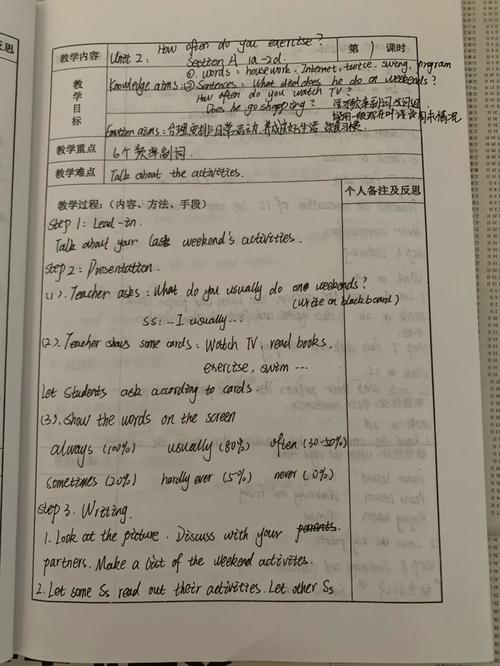 教学内容 Unit 2: How often do you exercise? Section A 1a-2d. 第 1 课时
教学目标
Knowledge aims: ①. words: housework. Internet, twice. swing, program
② Sentences: What does he do on weekends?
How often do you watch TV?
Does he go shopping?
Emotion aims: 合理安排日常活动, 养成良好生活
教学重点 6个频率副词.
教学难点 Talk about the activities.
教学过程:(内容、方法、手段)
个人备注及反思
Step 1: Lead-in.
Talk about your last weekend's activities.
Step 2: Presentation.
(1). Teacher asks: What do you usually do on weekends?
(write on blackboard)
ss: .. I usually ...
(2). Teacher shows some cards: Watch TV, read books.
exercise, swim ...
Let students ask according to cards.
(3). show the words on the screen
always (100%) usually (80%) often (30-50%)
sometimes (20%) hardly ever (5%) never (0%)
Step 3. Writing.
1. Look at the picture. Discuss with your parents.
partners. Make a list of the weekend activities.
2. Let some Ss read out their activities. Let other Ss